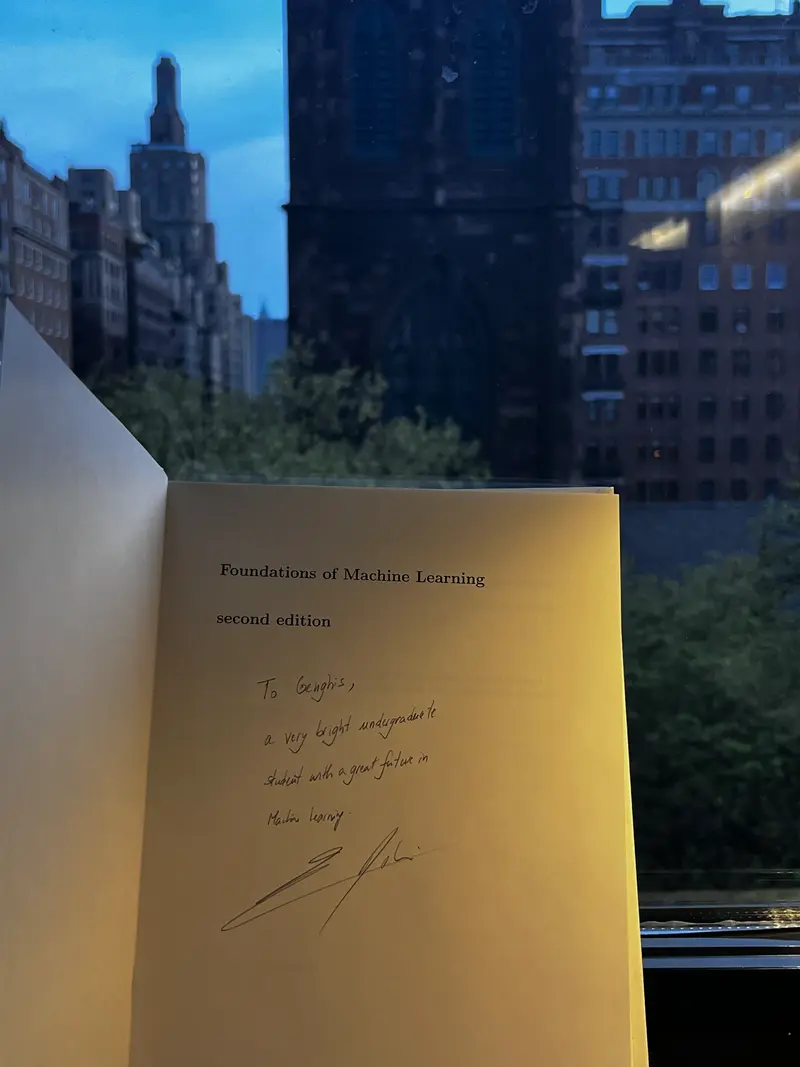 Foundations of Machine Learning
second edition
To Genghis,
a very bright undergraduate
student with a great future in
Machine learning.